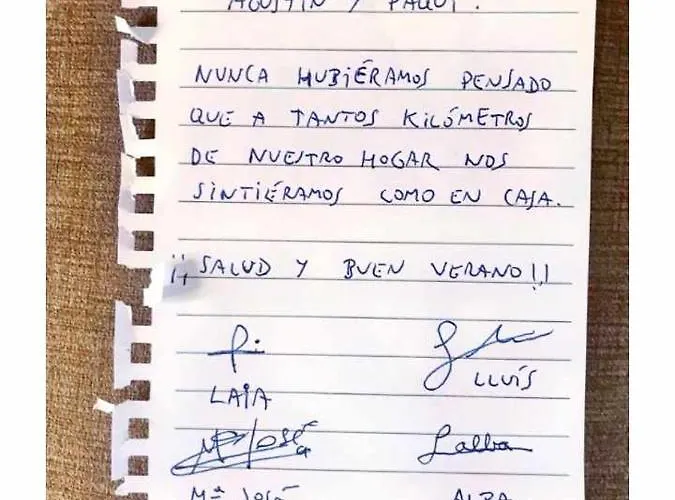 AGUSTÍN Y PAQUI.
NUNCA HUBIÉRAMOS PENSADO
QUE A TANTOS KILÓMETROS
DE NUESTRO HOGAR NOS
SINTIÉRAMOS COMO EN CASA.
¡¡SALUD Y BUEN VERANO!!
LLUÍS
LAIA
Mª José Lalba
Mª JOSÉ ALBA